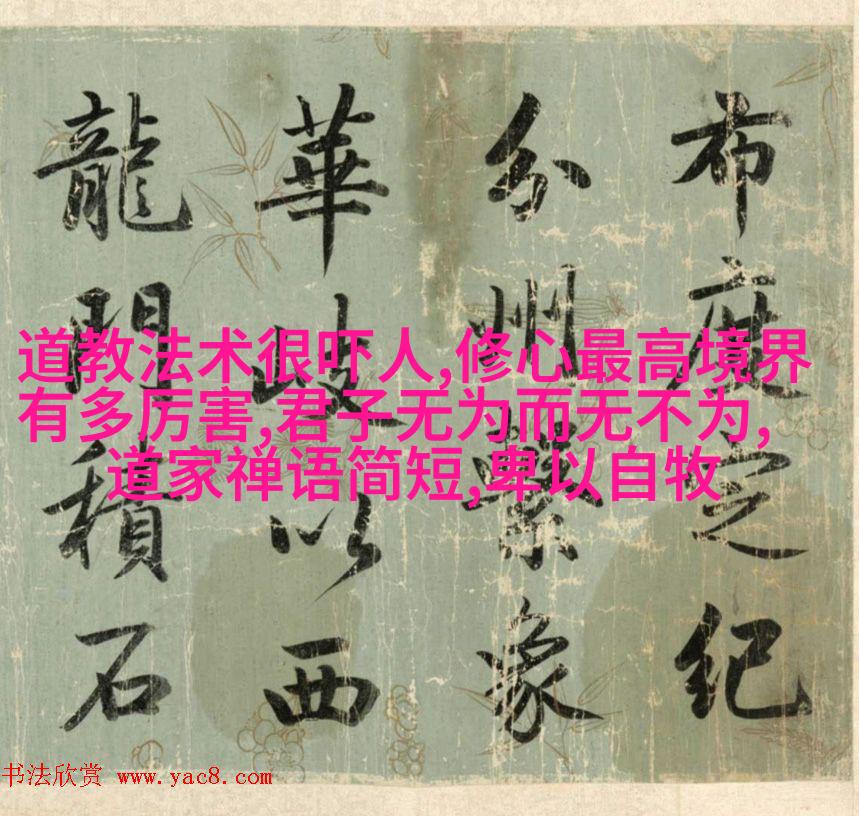 布度定紀
分州 象
華岐以西
龍門積石
道教法术很吓人,修心最高境界
有多厉害,君子无为而无不为,
道家禅语简短,卑以自牧
书法欣赏 www.yac8.com